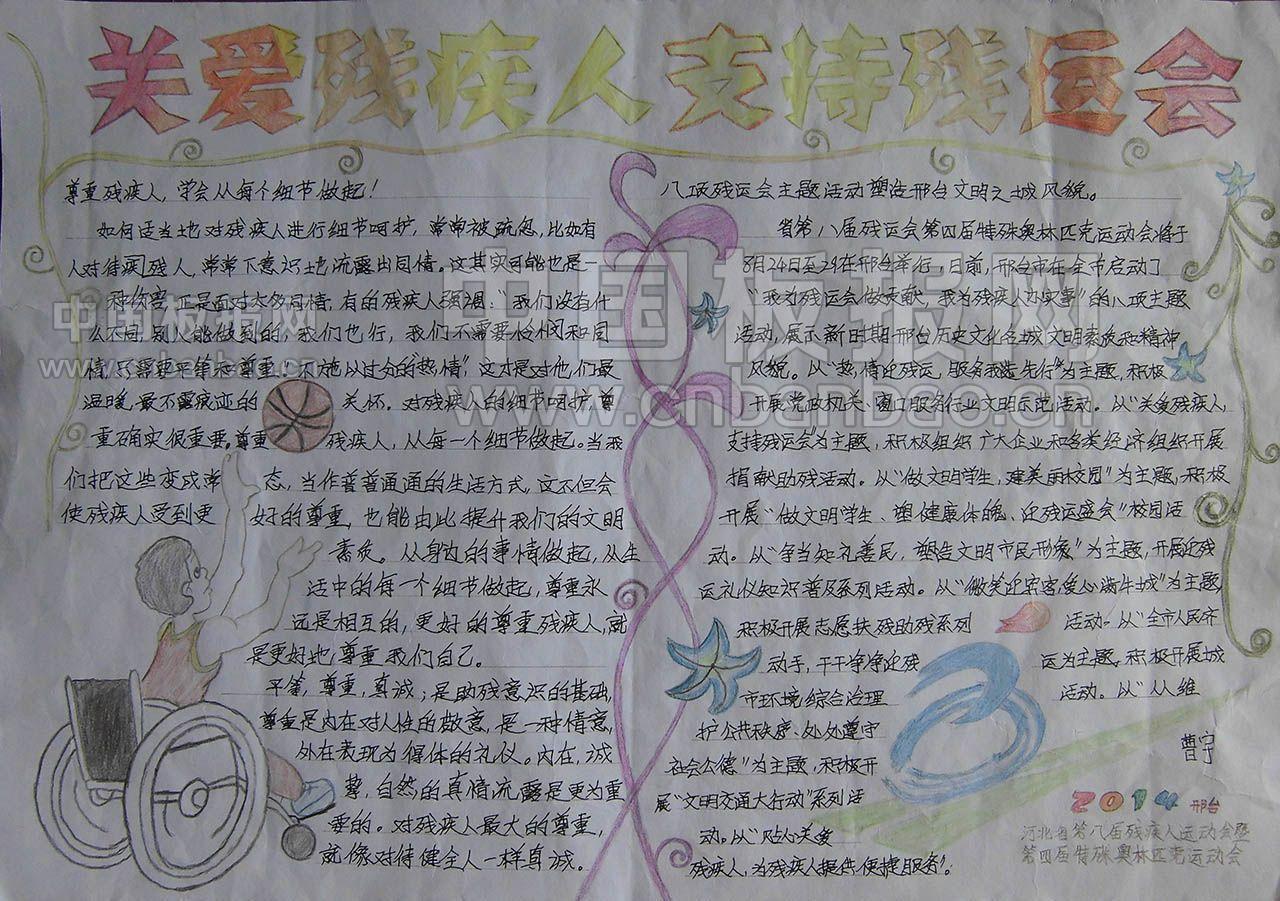 关爱残疾人支持残运会
尊重残疾人，学会从每个细节做起！
如何适当地对残疾人进行细节呵护，常常被疏忽，比如有
人对待残疾人，常常下意识地流露出同情。这其实可能也是一
种伤害，正是面对太多同情，有的残疾人强调：“我们没有什
么不同，别人能做到的，我们也行，我们不需要怜悯和同
情，只需要平等和尊重，不施以过分的热情”，这才是对他们最
温暖、最不露痕迹的关怀。对残疾人的细节呵护，尊
重确实很重要。尊重残疾人，从每一个细节做起。当我
们把这些变成常态，当作普普通通的生活方式，这不但会
使残疾人受到更好的尊重，也能由此提升我们的文明
素质。从身边的事情做起，从生
活中的每一个细节做起，尊重永
远是相互的，更好的尊重残疾人，就
是更好地尊重我们自己。
平等，尊重，真诚；是助残意识的基础，
尊重是内在对人性的敬意，是一种情意，
外在表现为得体的礼仪。内在，诚
挚，自然的真情流露是更为重
要的。对残疾人最大的尊重，
就像对待健全人一样真诚。
八项残运会主题活动塑造邢台文明之城风貌。
省第八届残运会第四届特殊奥林匹克运动会将于
8月24日至29在邢台举行，日前，邢台市在全市启动了
“我为残运会做贡献，我为残疾人办实事”的八项主题
活动，展示新时期邢台历史文化名城文明素质和精神
风貌。以“热情迎残运，服务我造先行”为主题，积极
开展党政机关、窗口服务行业文明示范活动。以“关爱残疾人，
支持残运会”为主题，积极组织广大企业和各类经济组织开展
捐献助残活动。以“做文明学生，建美丽校园”为主题，积极
开展“做文明学生、塑健康体魄、迎残运盛会”校园活
动。以“争当知礼善民，塑造文明市民形象”为主题，开展迎残
运礼仪知识普及系列活动。以“微笑迎宾客，爱心满牛城”为主题，
积极开展志愿扶残助残系列活动。以“全市人民齐
动手，干干净净迎残运为主题，积极开展城
市环境综合治理活动。以“人人维
护公共秩序、处处遵守
社会公德”为主题，积极开
展“文明交通大行动”系列活
动。以“贴心关爱
残疾人，为残疾人提供便捷服务”。
曹宁
2014 邢台
河北省第八届残疾人运动会暨
第四届特殊奥林匹克运动会
中国板报网
www.cnbanbao.cn
中国板报网
www.cnbanbao.cn